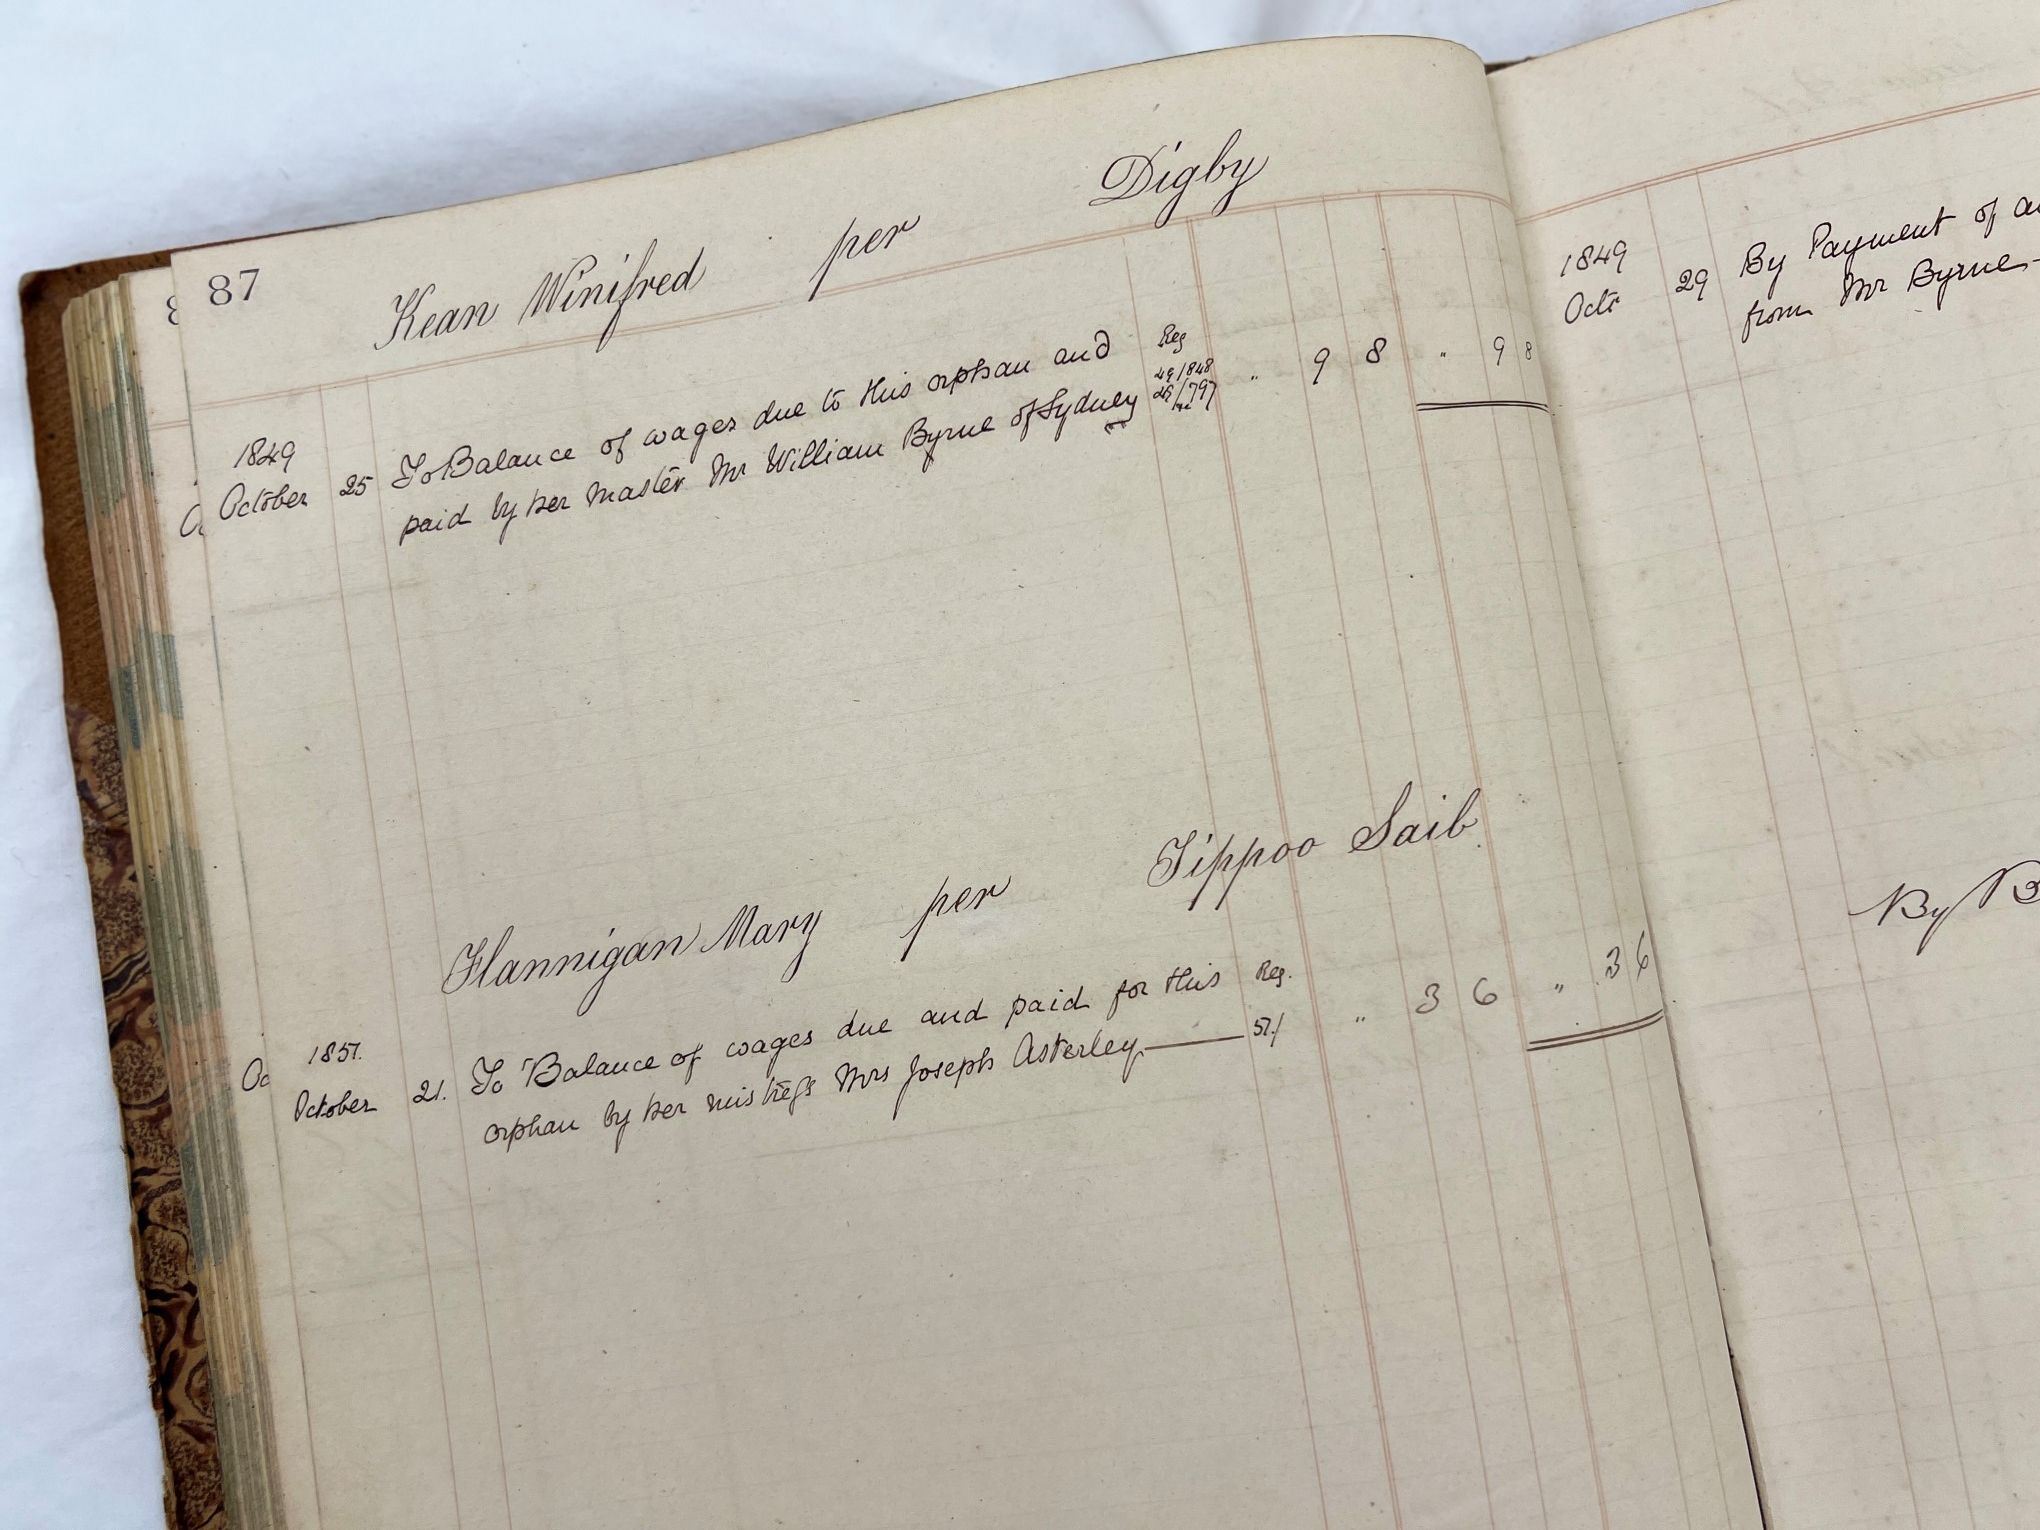 87
Kean Winifred per Digby
1849
October 25 To Balance of wages due to this orphan and Reg 49/848 " 9 8 " 9 8
paid by her Master Mr William Byrne of Sydney 49/797
Flannigan Mary per Tippoo Saib
1851.
October 21. To Balance of wages due and paid for this Reg. " 3 6 " 3 6
orphan by her mistress Mrs Joseph Asterley 51/
1849
Octr 29 By Payment of
from Mr Byrne
By B